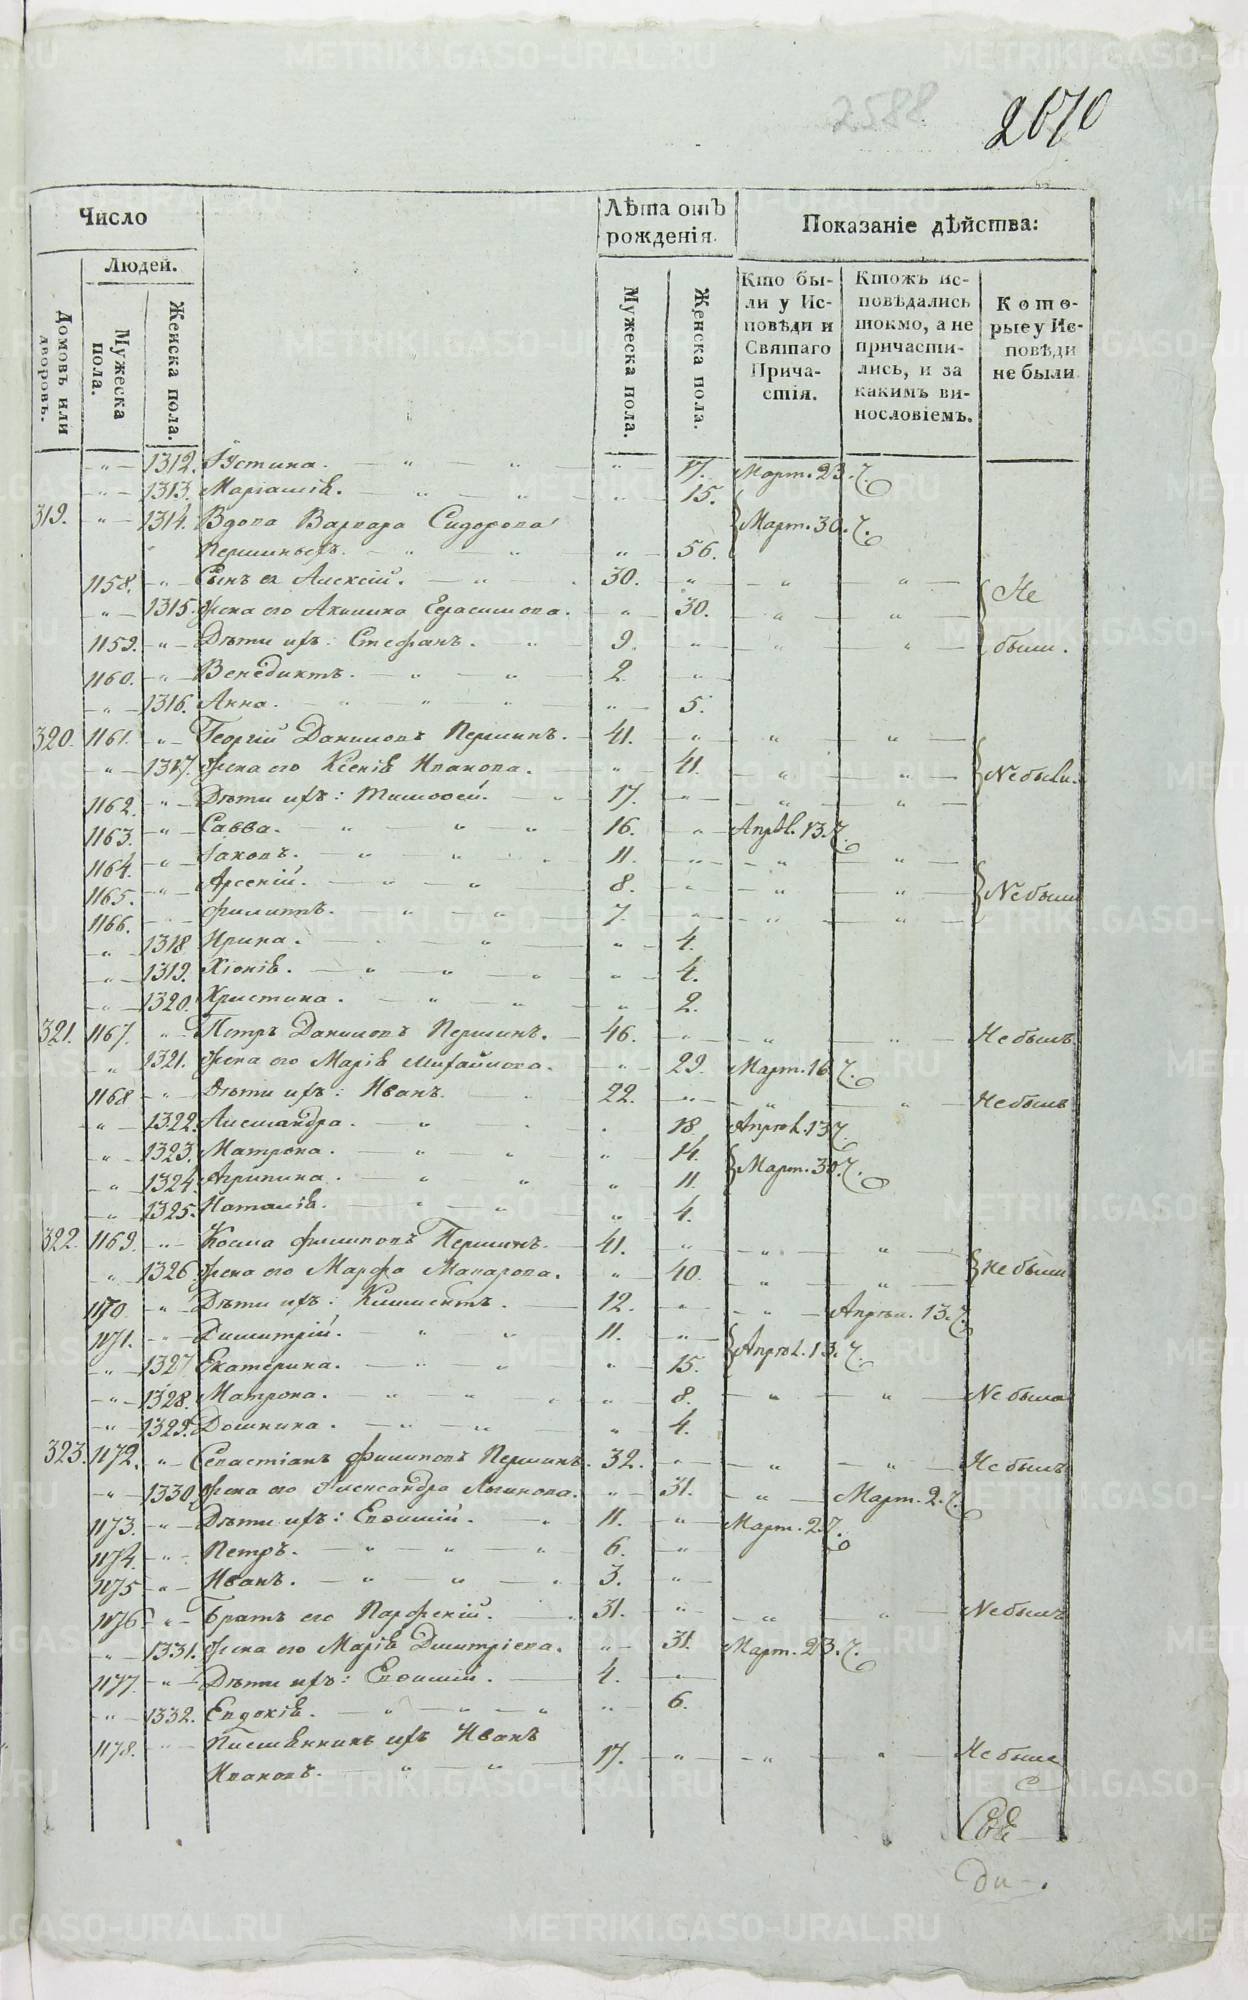 2588
2670
Число
Людей.
Домовъ или дворовъ.
Мужеска пола.
Женска пола.
Лѣта отъ рожденія.
Мужеска пола.
Женска пола.
Показаніе дѣйства:
Кто бы-
ли у Ис-
повѣди и
Святаго
Прича-
стія.
Ктожъ ис-
повѣдались
токмо, а не
причасти-
лись, и за
какимъ ви-
нословіемъ.
Кото-
рые у Ис-
повѣди
не были
1312. Іустина. 17. Март. 23. Ч.
1313. Маріамія. 15.
319. 1314. Вдова Варвара Сидорова Март. 30. Ч.
Першиныхъ. 56.
1158. Сынъ ея Алексій. 30. Не
1315. Жена его Акилина Герасимова. 30.
1159. Дѣти ихъ: Стефанъ. 9. были.
1160. Венедиктъ. 2.
1316. Анна. 5.
320. 1161. Георгій Даниловъ Першинъ. 41.
1317. Жена его Ксенія Иванова. 41. Не были.
1162. Дѣти ихъ: Тимофей. 17.
1163. Савва. 16. Апрѣл. 13. Ч.
1164. Іаковъ. 11.
1165. Арсеній. 8. Не были
1166. Филиппъ. 7.
1318. Ирина. 4.
1319. Хіонія. 4.
1320. Христина. 2.
321. 1167. Петръ Даниловъ Першинъ. 46. Не былъ
1321. Жена его Марія Михайлова. 29. Март. 16. Ч.
1168 Дѣти ихъ: Иванъ. 22. Не былъ
1322. Александра. 18 Апрѣл. 13 Ч.
1323. Матрона. 14. Март. 30. Ч.
1324. Агрипина. 11.
1325. Наталія. 4.
322. 1169. Косма Филиповъ Першинъ. 41.
1326. Жена его Марфа Макарова. 40. Не были
1170. Дѣти ихъ: Климентъ. 12. Апрѣл. 13. Ч.
1171. Димитрій. 11. Апрѣл. 13. Ч.
1327 Екатерина. 15.
1328. Матрона. 8. Не была
1329. Домника. 4.
323. 1172. Севастіанъ Филиповъ Першинъ. 32. Не былъ
1330. Жена его Александра Логинова. 31. Март. 2. Ч.
1173. Дѣти ихъ: Евфимій. 11. Март. 2. Ч.
1174. Петръ. 6.
1175 Иванъ. 3.
1176 Братъ его Парфеній. 31. Не былъ
1331. Жена его Марія Дмитріева. 31. Март. 23. Ч.
1177. Дѣти ихъ: Евфимій. 4.
1332. Евдокія. 6.
1178. Писменникъ ихъ Иванъ
Ивановъ. 17. Не былъ
ди
METRIKI.GASO-URAL.RU